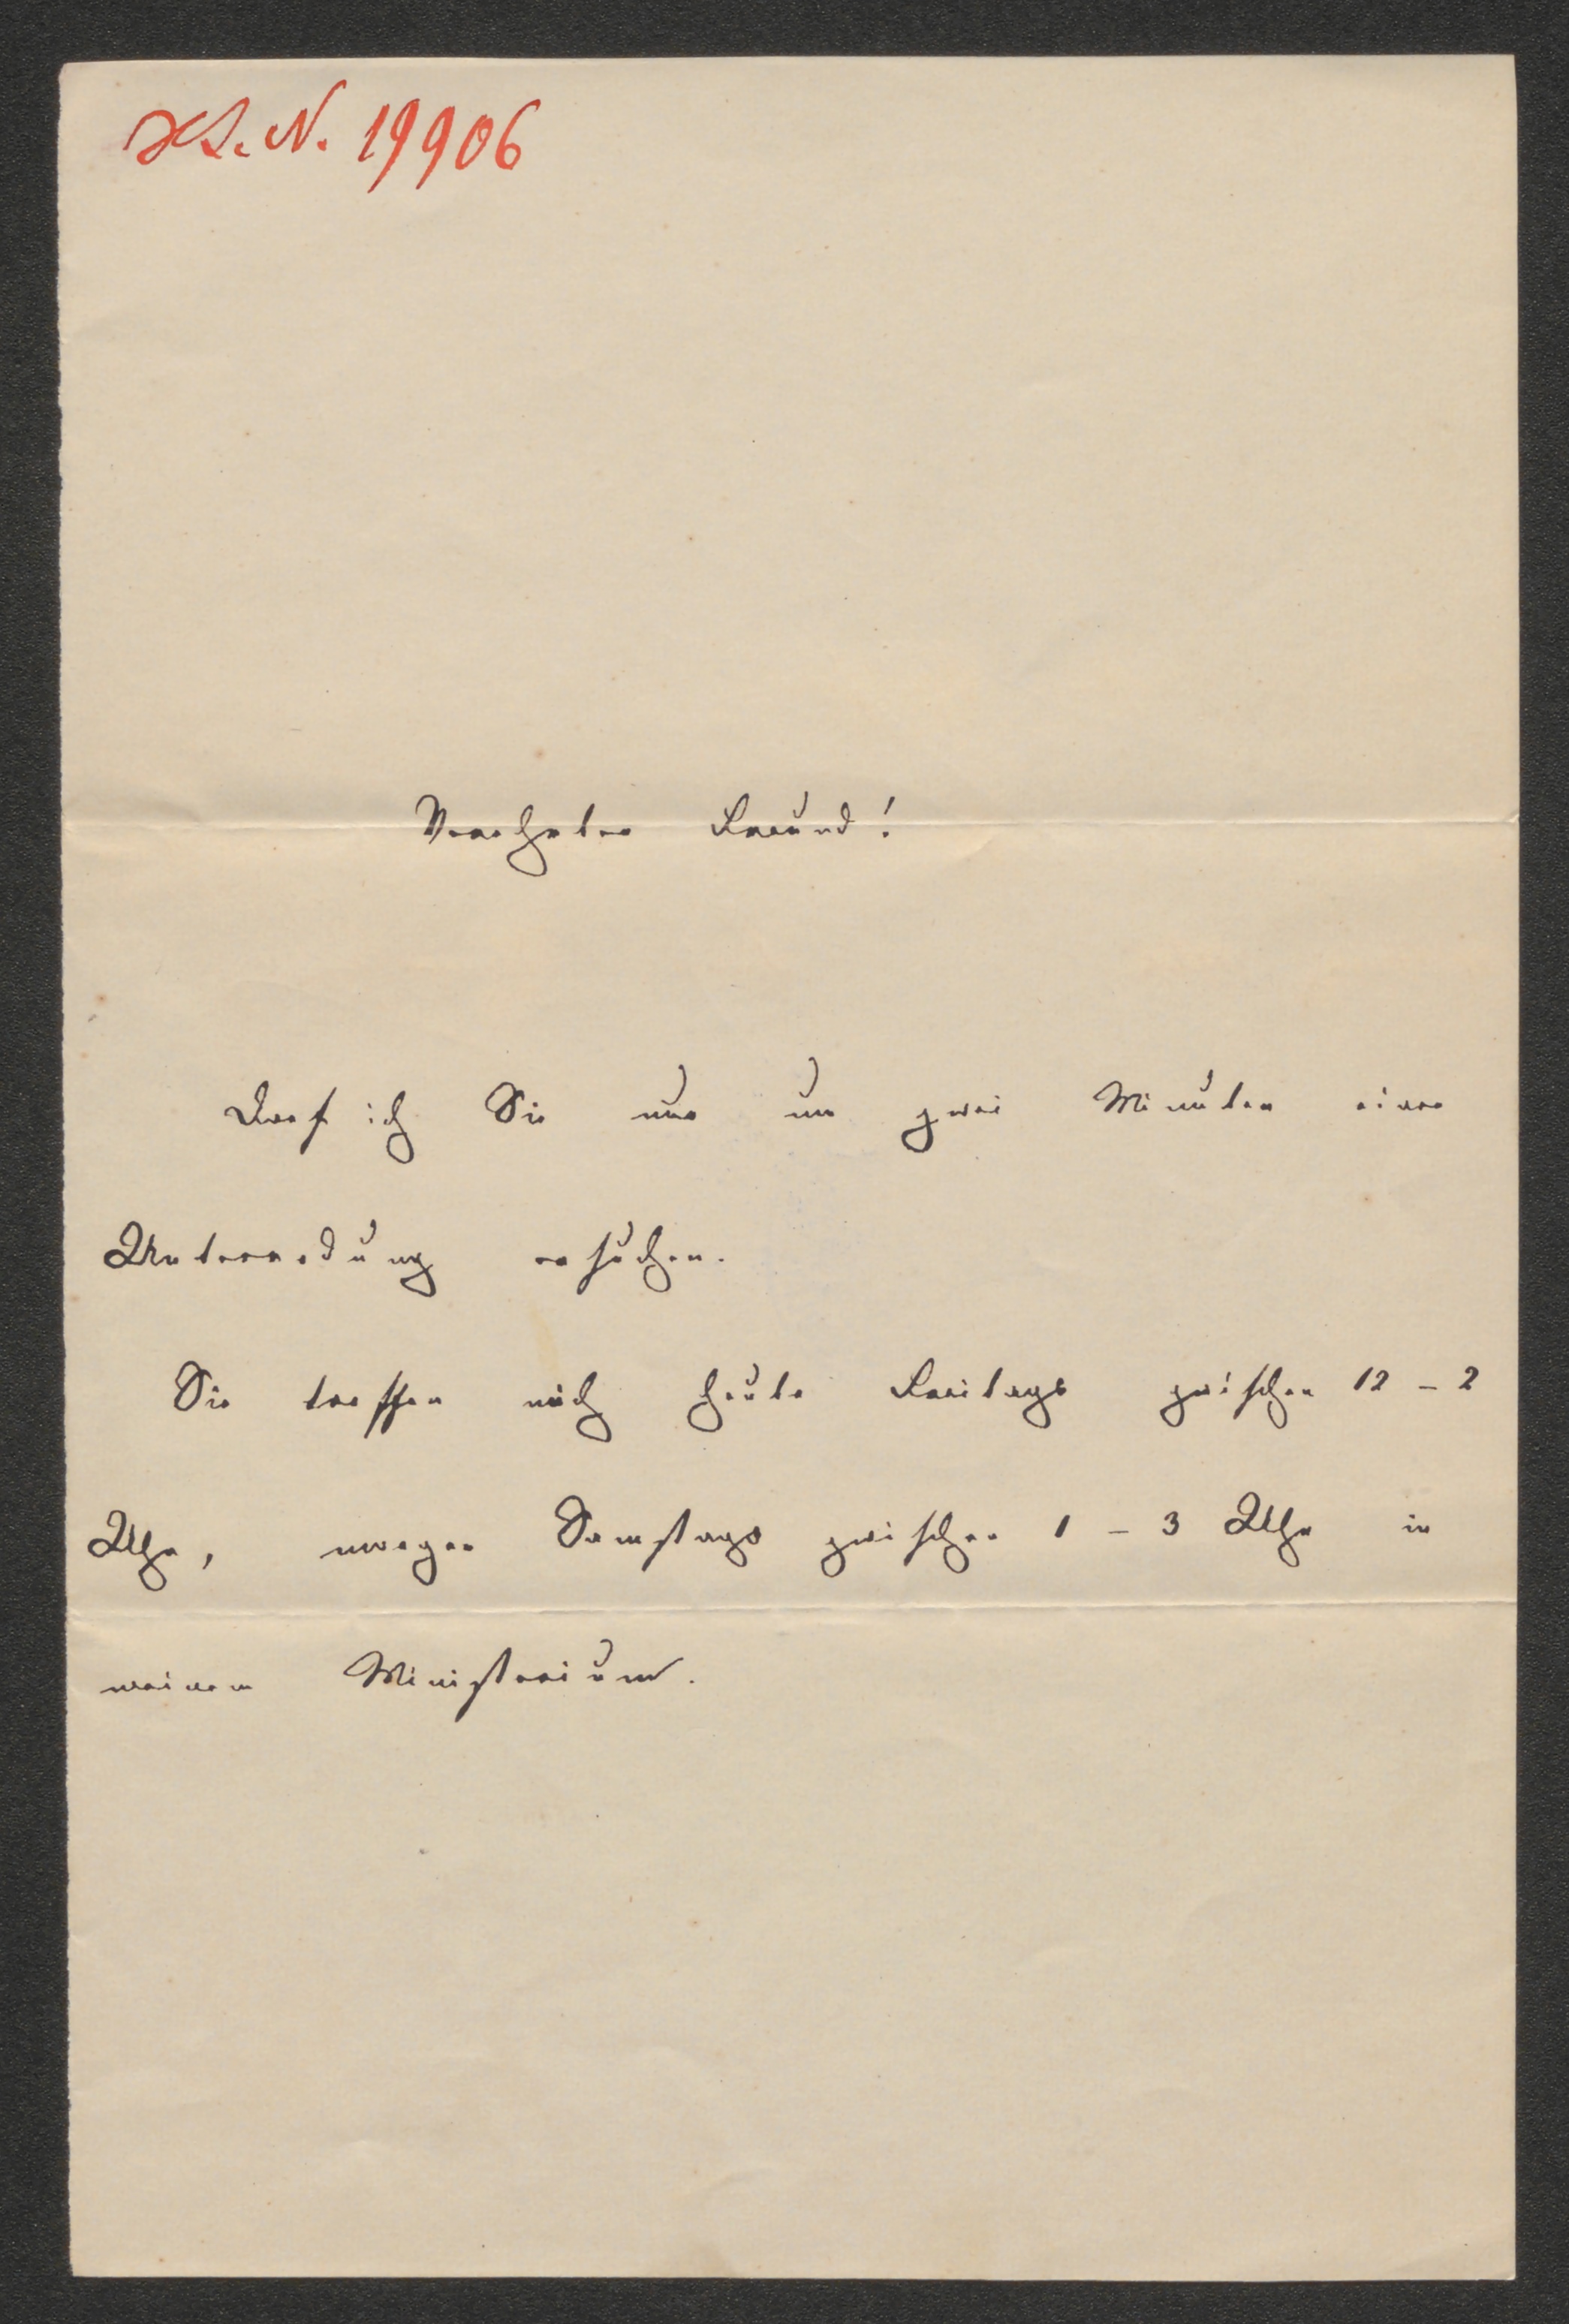 H.I.N. 19906
Verehrter Freund!
Darf ich Sie nur um zwei Minuten einer
Unterredung ersuchen.
Sie treffen mich heute Freitags zwischen 12 – 2
Uhr, morgen Samstags zwischen 1 – 3 Uhr in
meinem Ministerium.